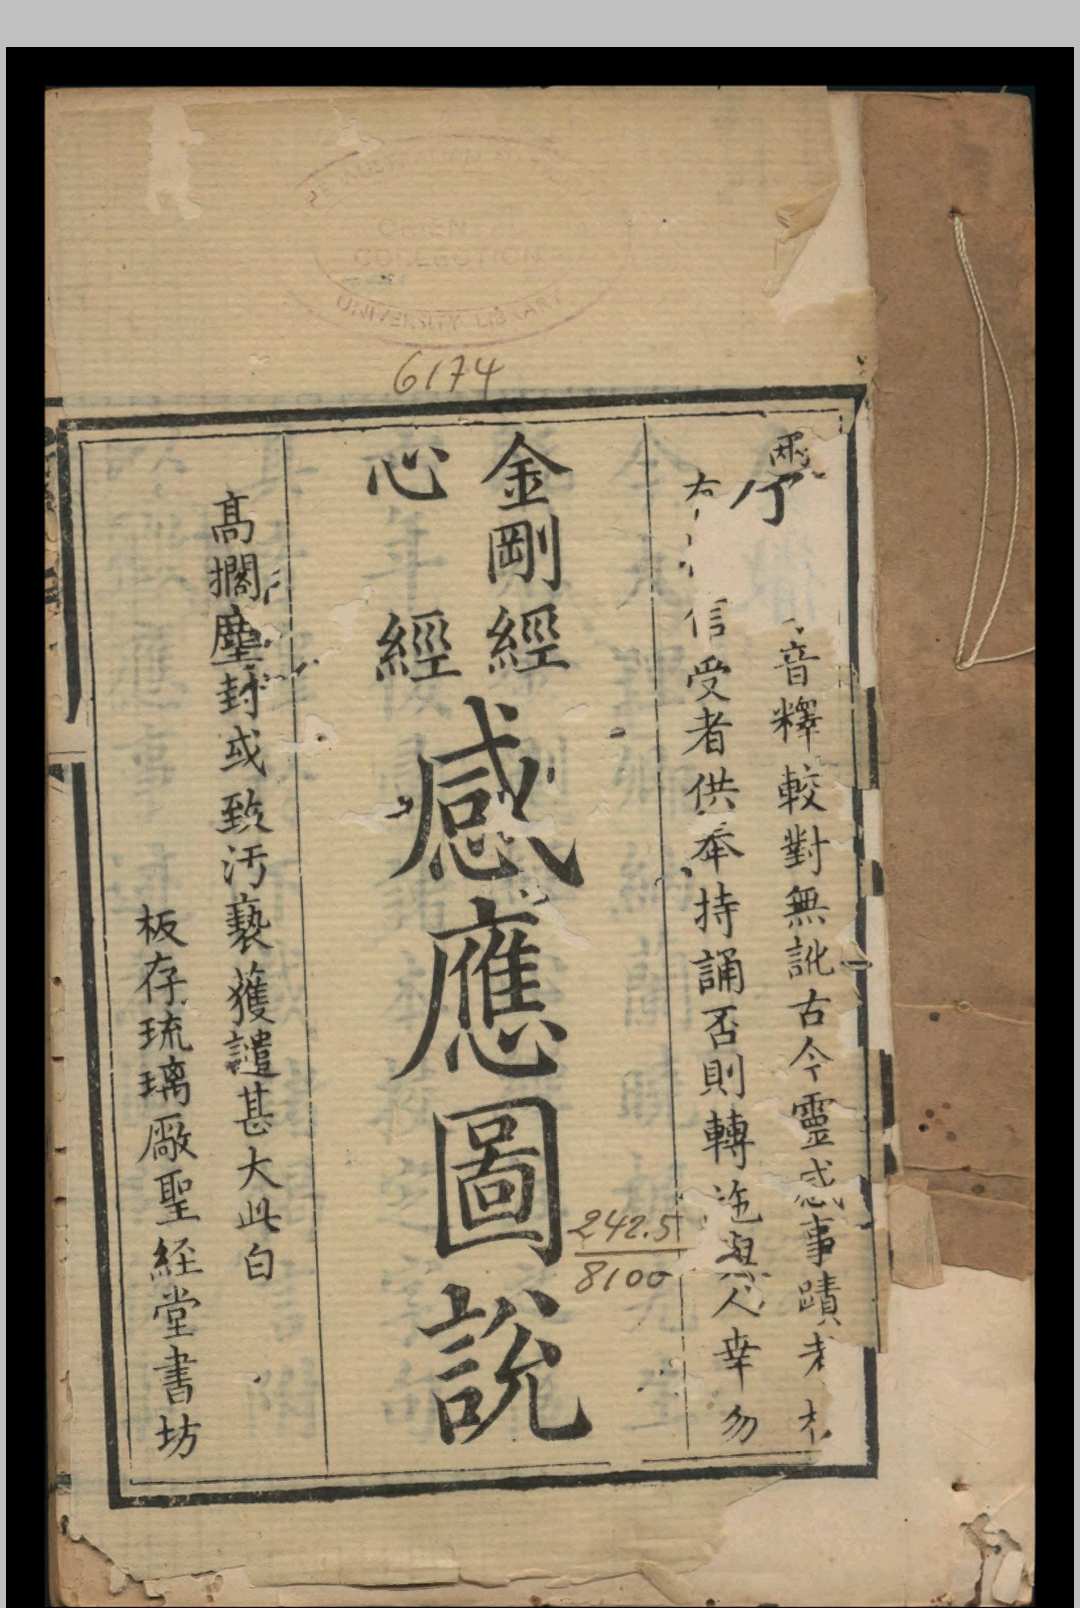 音釋較對無訛古今靈感事蹟
信受者供奉持誦否則轉施與人幸勿
金剛經
心經
感應圖說
高擱塵封或致汚褻獲譴甚大此白
板存琉璃廠聖経堂書坊
COLLECTION
UNIVERSITY LIBRARY
6174
242.5
8100